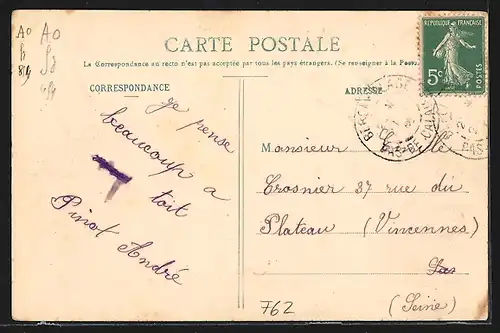 AO
AO
CARTE POSTALE
La Correspondance au recto n'est pas acceptée par tous les pays étrangers. (Se renseigner à la Poste)
CORRESPONDANCE
ADRESSE
REPUBLIQUE FRANÇAISE
5c
PAS-DE-CALAIS
Je pense
beaucoup a
toit
Pinot André
Monsieur
Crosnier 37 rue du
Plateau (Vincennes)
(Seine)
762